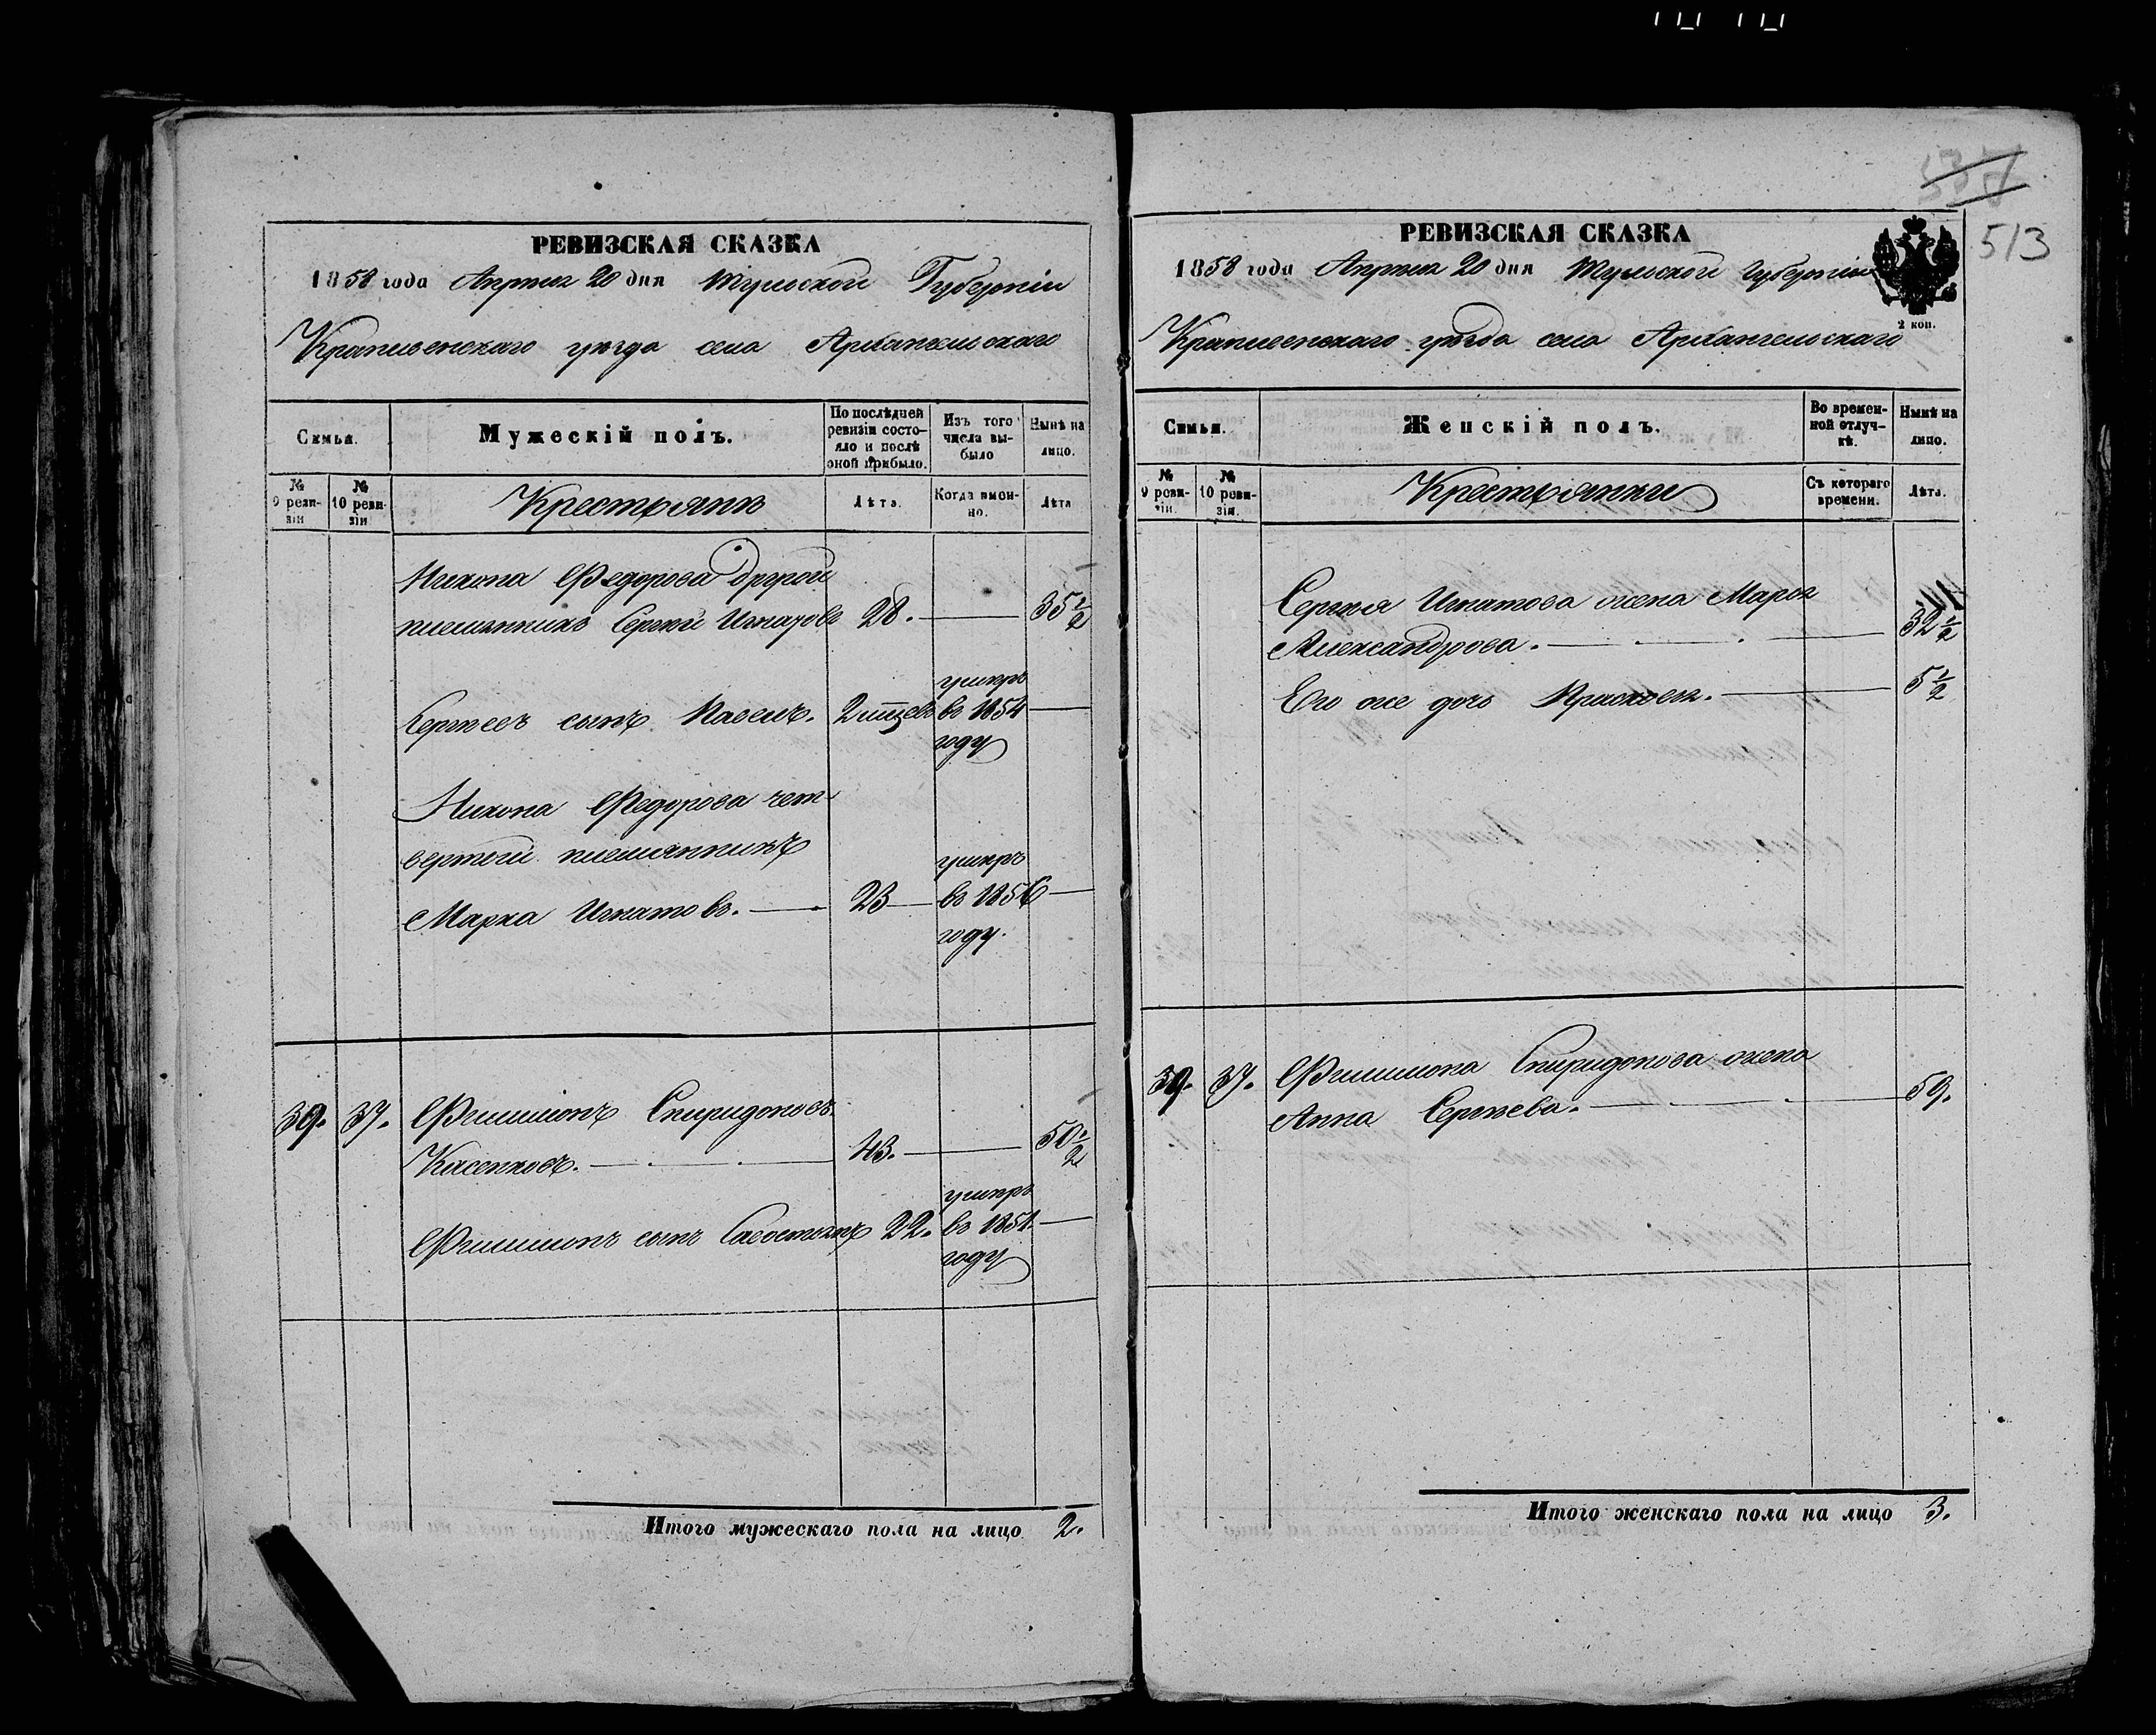 РЕВИЗСКАЯ СКАЗКА
1858 года Апреля 20 дня Тульской Губернии
Крапивенскаго уезда села Архангельскаго
Семья.
Мужескій полъ.
По последней ревизіи состояло и после оной прибыло.
Изъ того числа выбыло
Ныне на лицо.
№ 9 ревизіи
№ 10 ревизіи
Крестьяне
Лѣта.
Когда именно.
Лѣта
Никона Федорова другой
племянникъ Сергѣй Игнатовъ 28. 35 1/2
умеръ
Сергѣевъ сынъ Павелъ. въ 1854
году
Никона Федорова чет-
вертой племянникъ
умеръ
Марка Игнатовъ. 23 въ 1856
году.
39. 37. Филимонъ Спиридоновъ
43. 50 1/2
умеръ
Филимоновъ сынъ Савостьянъ 22. въ 1854
году
Итого мужескаго пола на лицо 2.
513
РЕВИЗСКАЯ СКАЗКА
1858 года Апреля 20 дня Тульской Губерніи
2 коп.
Крапивенскаго уѣзда села Архангельскаго
Семья.
Женскій полъ.
Во временной отлучкѣ.
Нынѣ на лицо.
№ 9 ревизіи.
№ 10 ревизіи.
Крестьянки
Съ котораго времени.
Лѣта.
Сергѣя Игнатова жена Марья
Александрова. 32 1/2
Его же дочь Прасковья. 5 1/2
39. 37. Филимона Спиридонова жена
Анна Сергѣева. 59.
Итого женскаго пола на лицо 3.